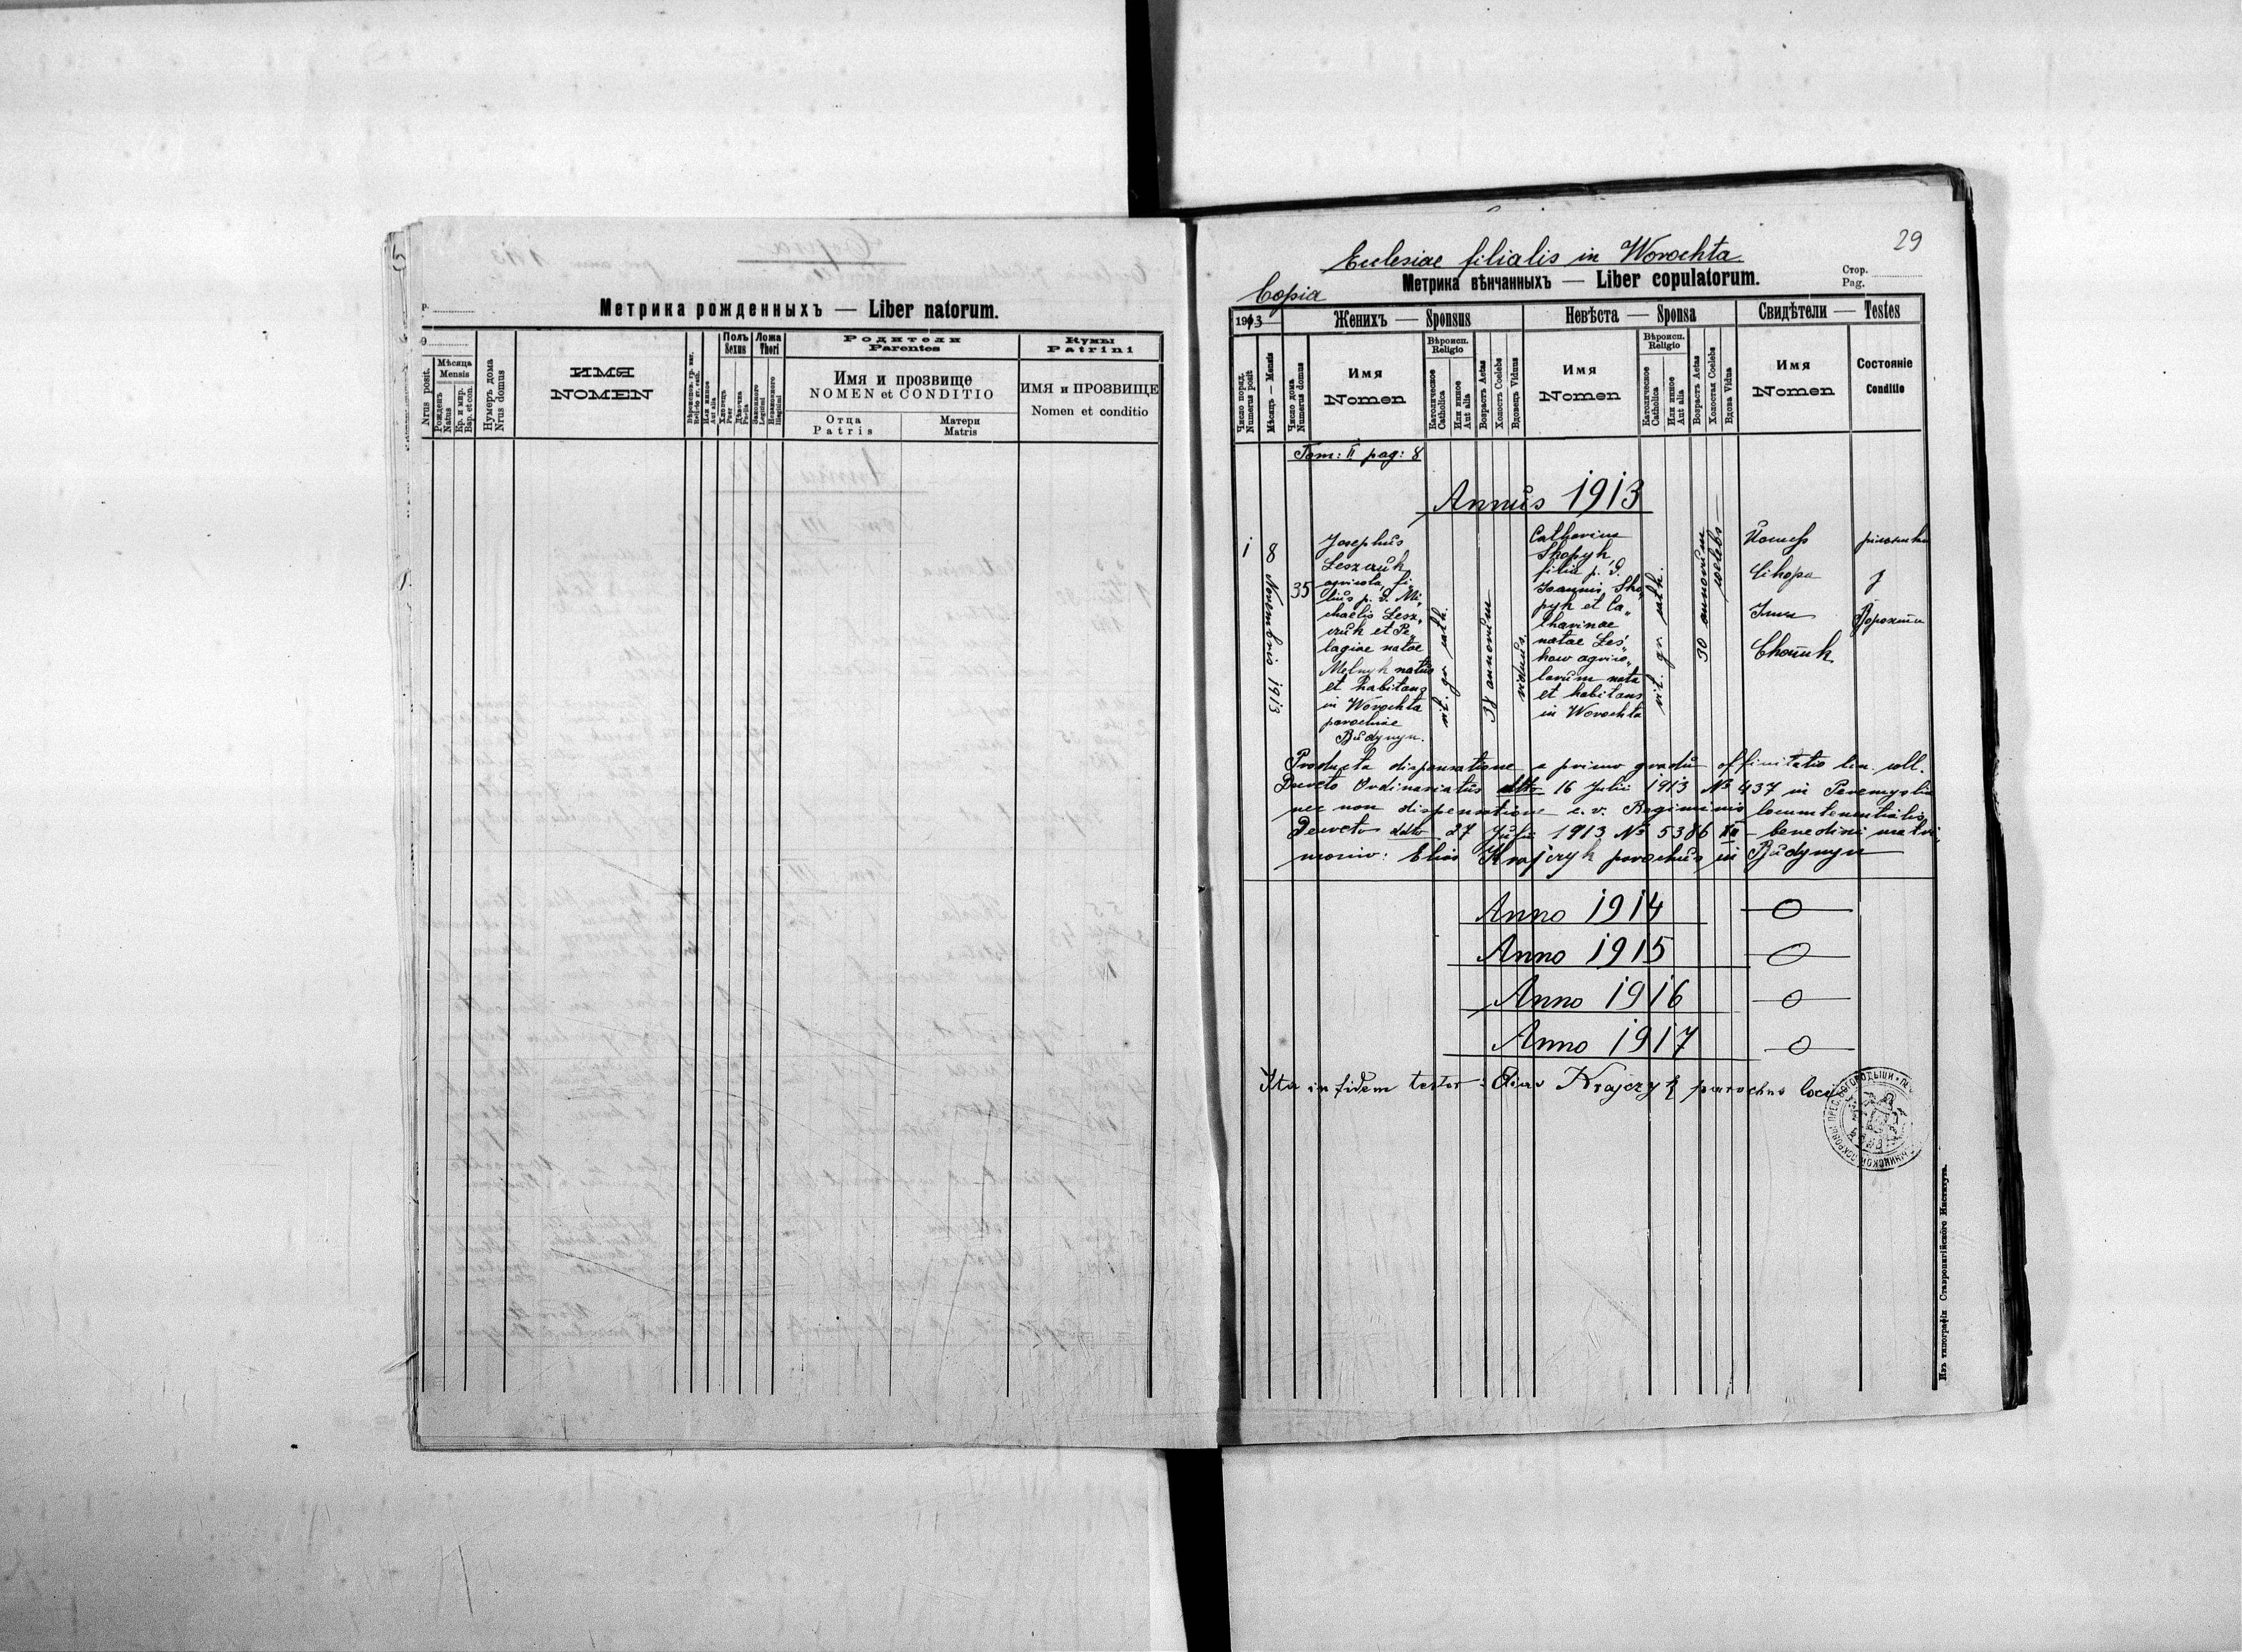 Метрика рожденныхъ — Liber natorum.
Nrus posit.
Мѣсяца
Mensis
Рожденъ
Natus
Кр. и мир.
Bap. et con.
Нумеръ дома
Nrus domus
ИМЯ
NOMEN
Или инное
Aut alia
Полъ
Sexus
Хлопецъ
Puer
Дѣвочка
Puella
Ложа
Thori
Законного
Legitimi
Незаконного
Illegitimi
Родители
Parentes
Имя и прозвище
NOMEN et CONDITIO
Отца
Patris
Матери
Matris
Кумы
Patrini
ИМЯ и ПРОЗВИЩЕ
Nomen et conditio
29
Ecclesiae filialis in Worochta
Copia
Метрика вѣнчанныхъ — Liber copulatorum.
Стор.
Pag.
1913
Женихъ — Sponsus
Невѣста — Sponsa
Свидѣтели — Testes
Число поряд.
Numerus posit
Мѣсяць — Mensis
Число дома
Numerus domus
Имя
Nomen
Вѣроисп.
Religio
Католическое
Catholica
Или инное
Aut alia
Возрастъ Aetas
Холостъ Coelebs
Вдовецъ Viduus
Имя
Nomen
Вѣроисп.
Religio
Католическое
Catholica
Или инное
Aut alia
Возрастъ Aetas
Холостая Coelebs
Вдова Vidua
Имя
Nomen
Состояніе
Conditio
Tom: II pag: 8
Annus 1913
1
8 Novembris 1913
35
Josephus
Leszczuk
agricola, fi„
lius p. d. Mi„
chaelis Lesz„
czuk et Pe„
lagiae natae
Melnyk natus
et habitans
in Worochta
parochiae
Budynyn.
rit. gr. cath.
38 annorum
viduus.
Catharina
Skopyk
filia p. d.
Joannis Sko„
pyk et Ca„
tharinae
natae Les„
kow agrico„
larum nata
et habitans
in Worochta
rit. gr. cath.
30 annorum
coelebs
Cikopa
Ворохта
Producta dispensatione a primo gradu affinitatis lin. coll.
Decreto Ordinariatus ddto 16 Julii 1913 № 437 in Peremyslia
nec non dispensatione c. r. Regiminis locumtenentialis
Decreto ddto 27 Julii 1913 № 5386 benedixi matri„
monio: Elias Krajczyk parochus in Budynyn
Anno 1914 — 0 —
Anno 1915 — 0 —
Anno 1916 — 0 —
Anno 1917 — 0 —
Ita in fidem testor: Elias Krajczyk parochus loci
Изъ типографіи Ставропигійского Института.